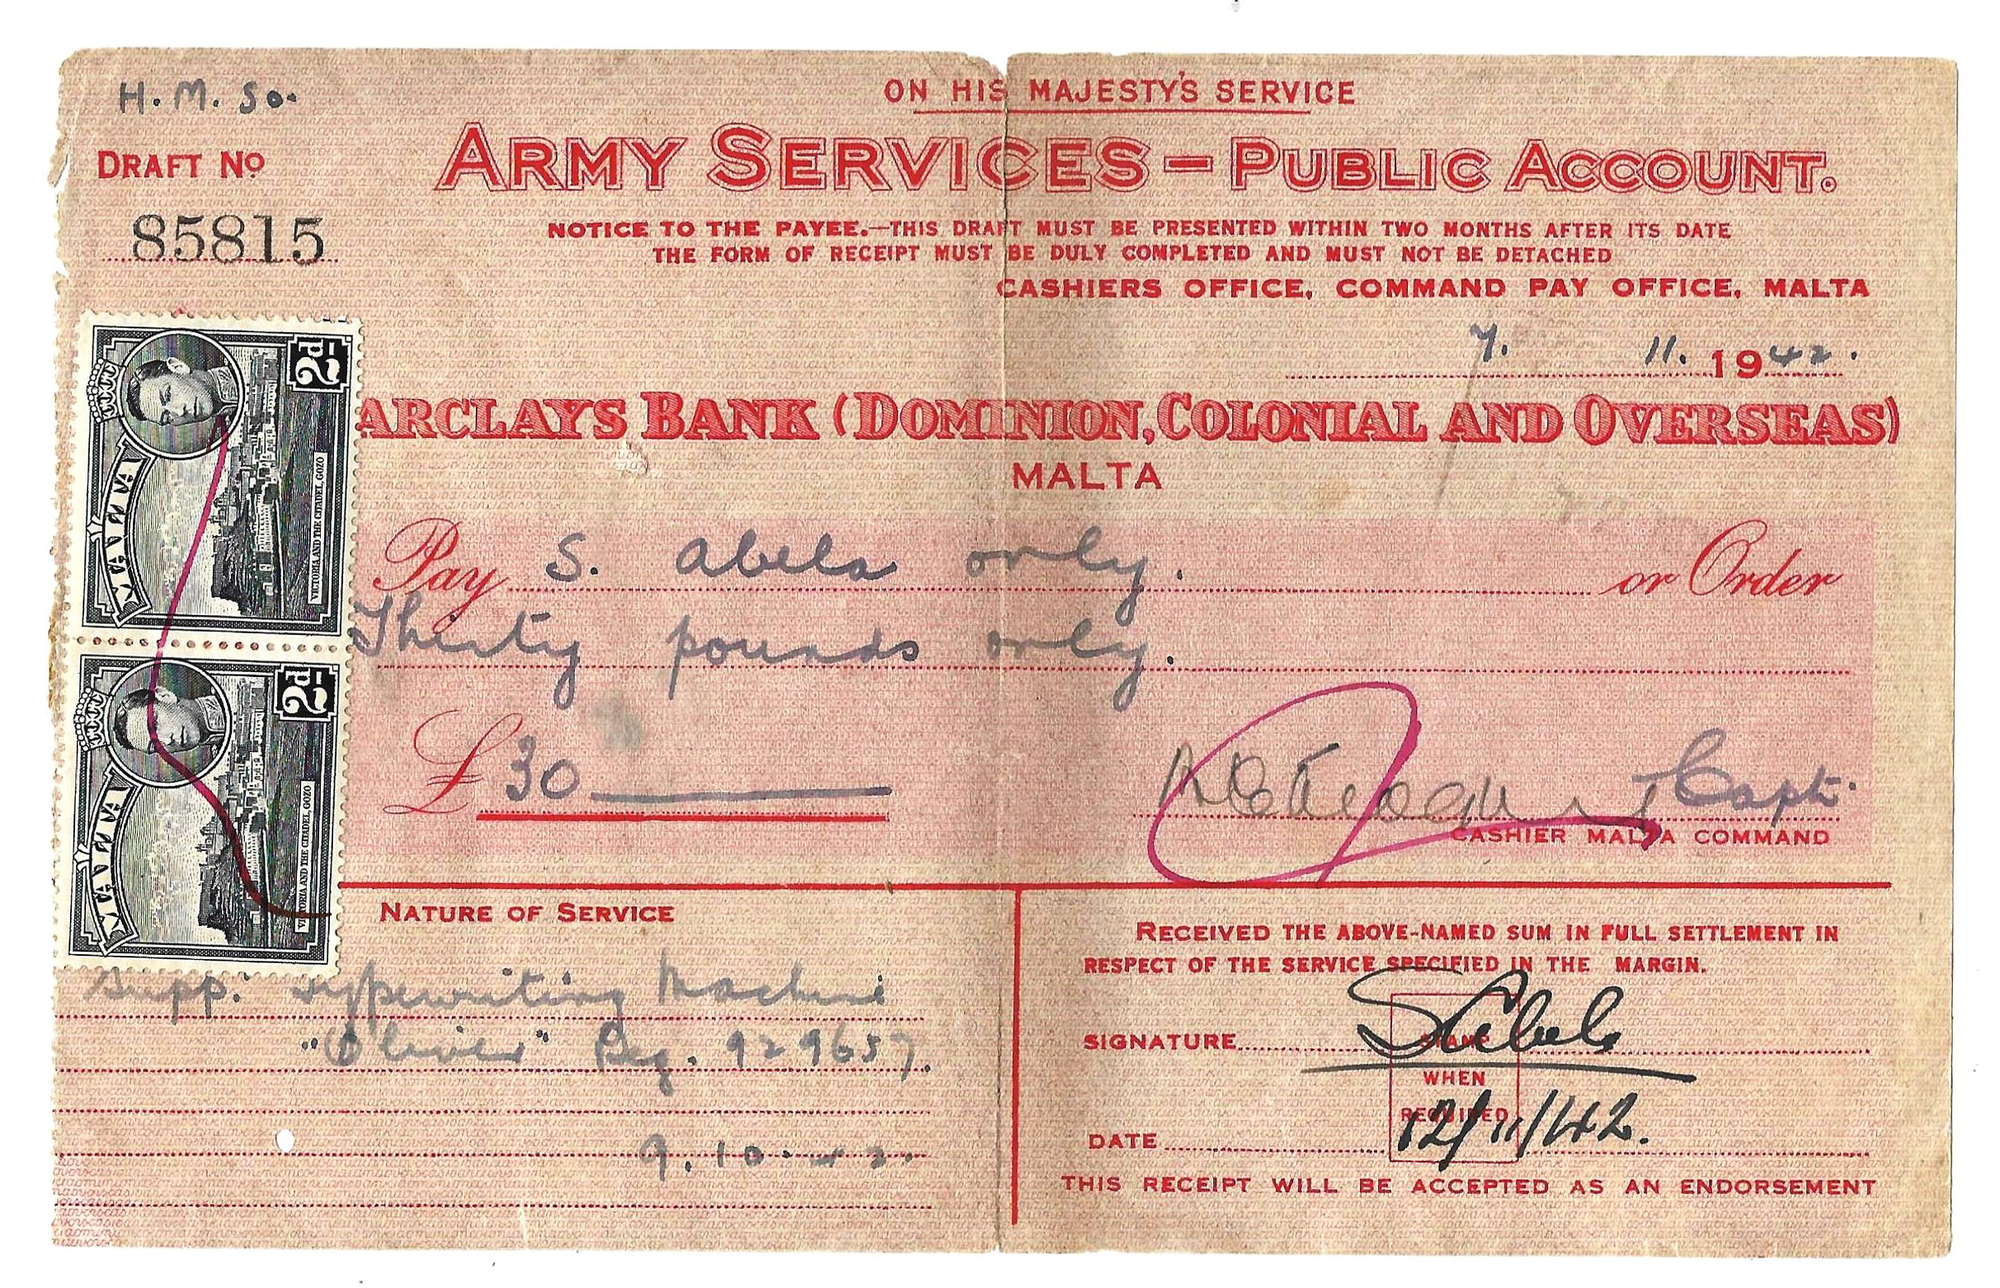 H. M. So.
ON HIS MAJESTY'S SERVICE
DRAFT No
ARMY SERVICES — PUBLIC ACCOUNT.
85815
NOTICE TO THE PAYEE.—THIS DRAFT MUST BE PRESENTED WITHIN TWO MONTHS AFTER ITS DATE
THE FORM OF RECEIPT MUST BE DULY COMPLETED AND MUST NOT BE DETACHED
CASHIERS OFFICE, COMMAND PAY OFFICE, MALTA
7. 11. 1942.
ARCLAYS BANK (DOMINION, COLONIAL AND OVERSEAS)
MALTA
Pay S. Abela only. or Order
Thirty pounds only.
£ 30
Capt.
CASHIER MALTA COMMAND
2d
MALTA
VICTORIA AND THE CITADEL, GOZO
2d
MALTA
VICTORIA AND THE CITADEL, GOZO
NATURE OF SERVICE
Supp. typewriting Machine
"Oliver" Reg. 929657.
9. 10. 42.
RECEIVED THE ABOVE-NAMED SUM IN FULL SETTLEMENT IN
RESPECT OF THE SERVICE SPECIFIED IN THE MARGIN.
SIGNATURE SAbela
STAMP
WHEN
REQUIRED
DATE 12/11/42.
THIS RECEIPT WILL BE ACCEPTED AS AN ENDORSEMENT